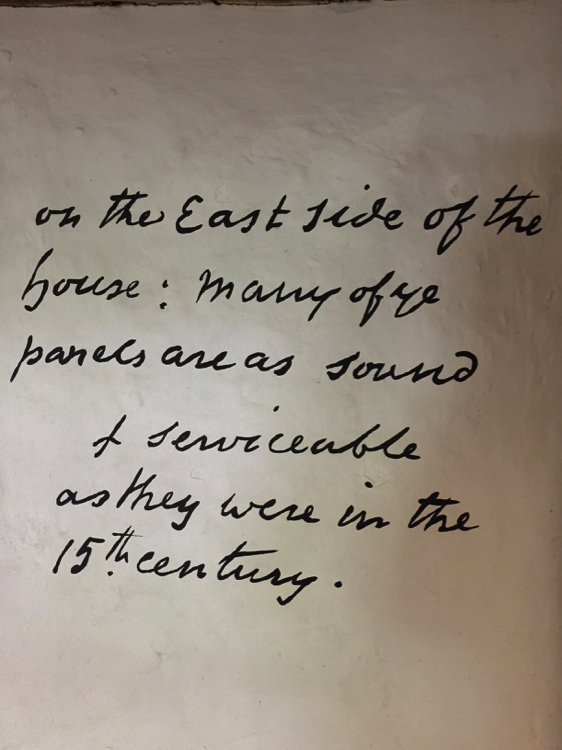 on the East side of the
house : Many of ye
panels are as sound
& serviceable
as they were in the
15th century.